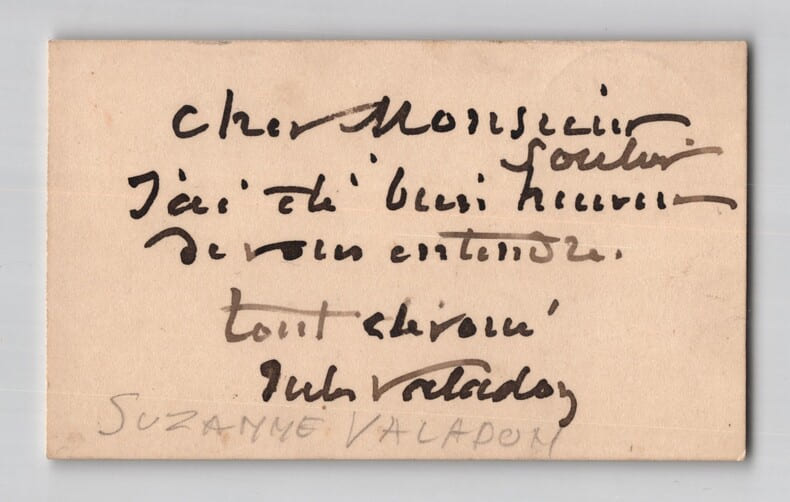 Cher Monsieur
Soulier
J'ai été bien heureux
de vous entendre.
tout dévoué
Jules Valadon
SUZANNE VALADON